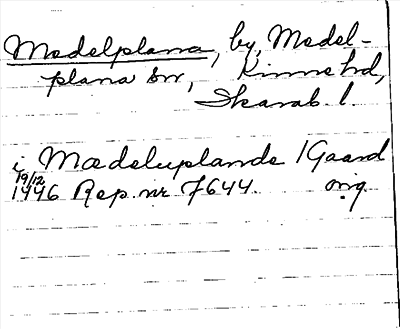 Medelplana, by, Medel-
plana sn, Kinne hd,
Skarab. l.
i Mædeluplande /Gaard
19/12
1446 Rep. nr 7644. orig.